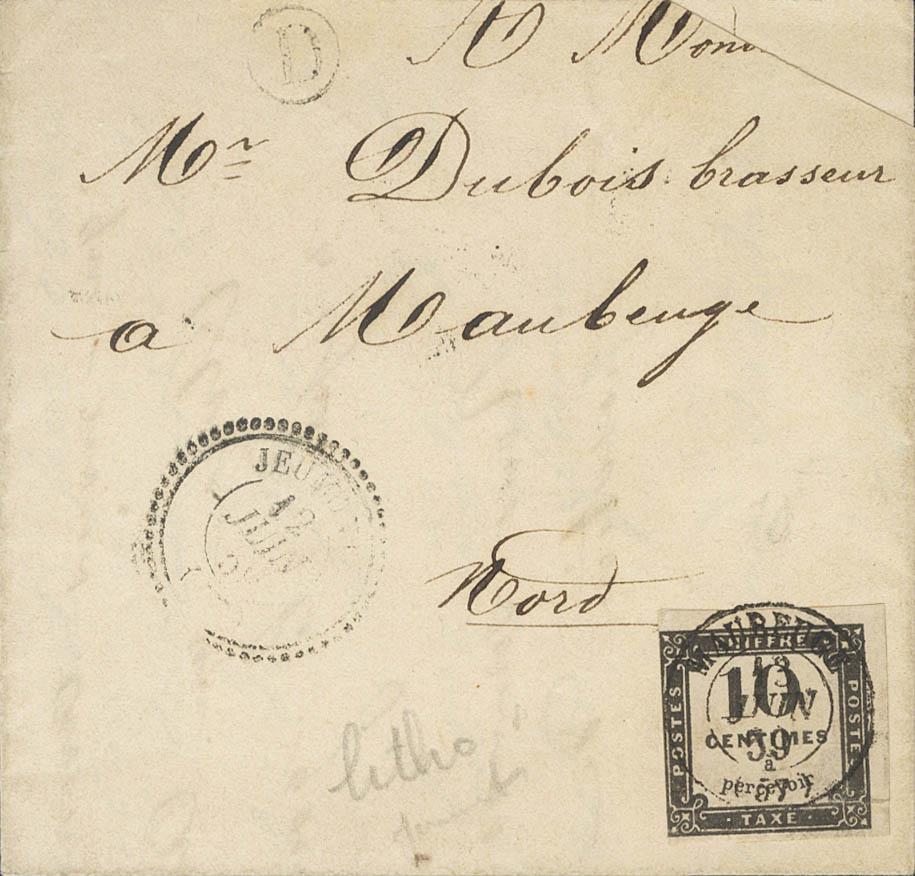 D
A Mon
Mr Dubois brasseur
a Maubeuge
JEUM
12
JUIN
Nord
litho
MAUBEUGE
13
JUIN
59
(57)
CHIFFRE
POSTES
POSTES
10
CENTIMES
à
percevoir
TAXE